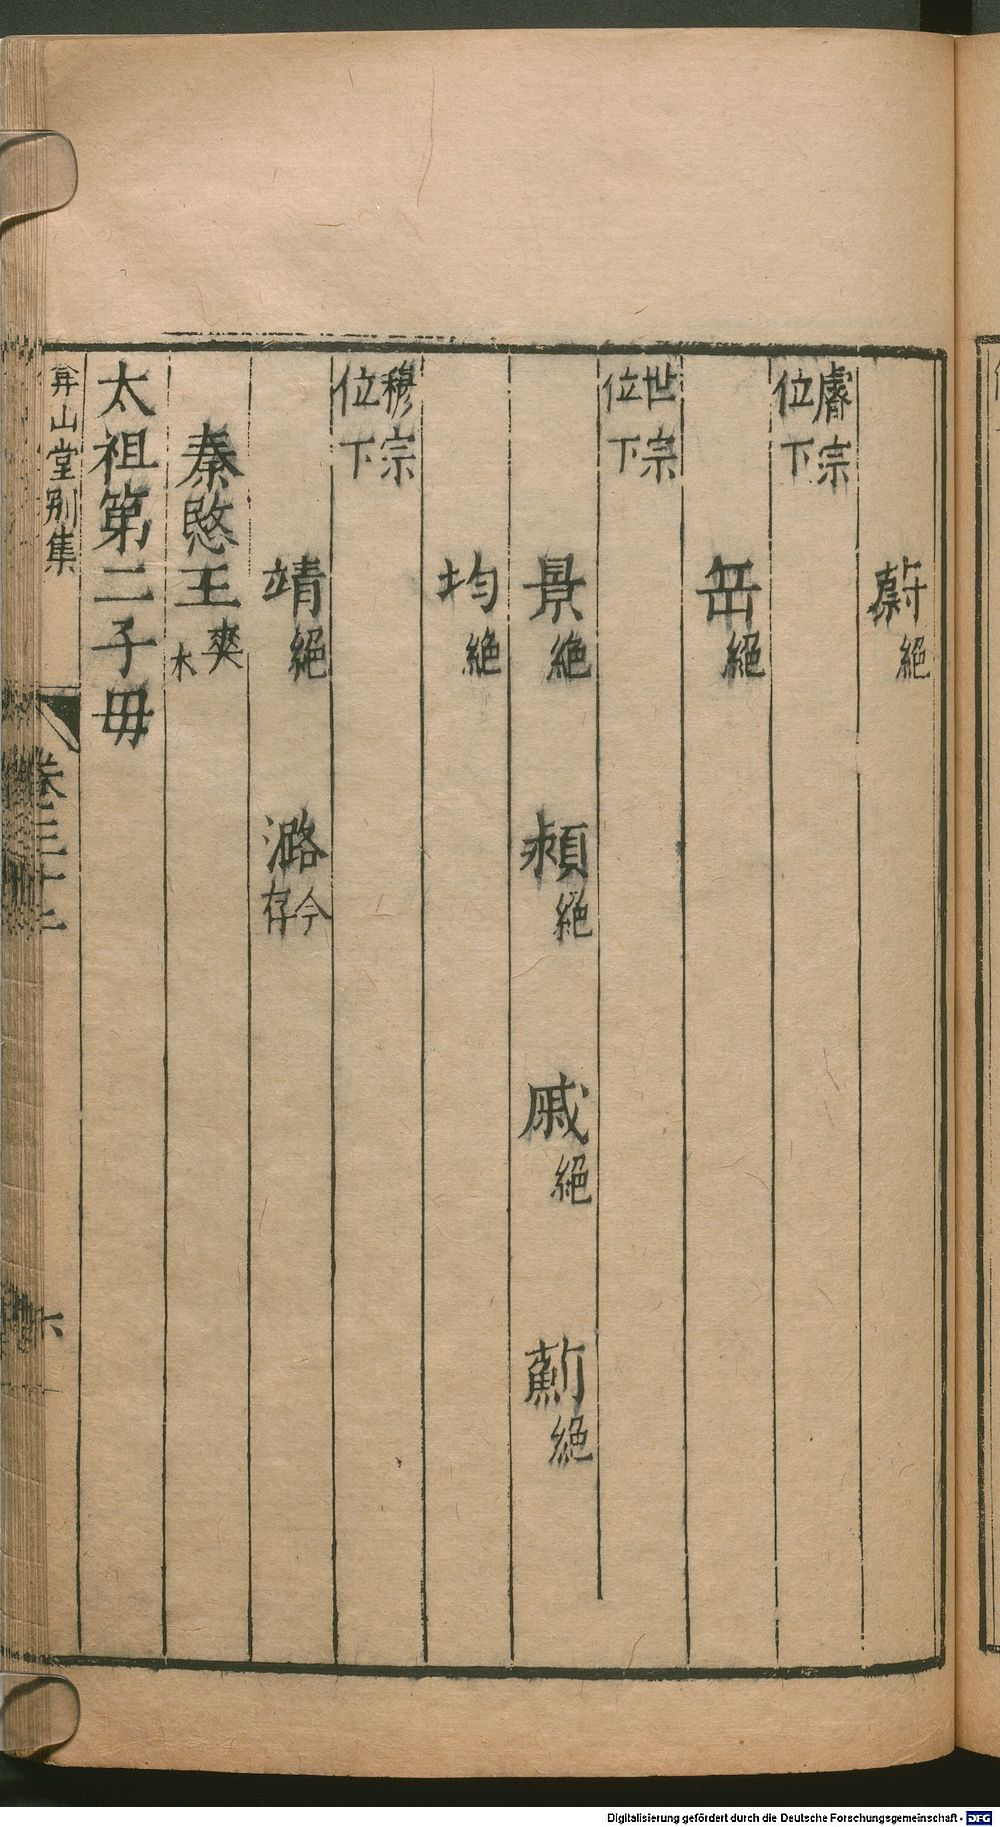 蔚絕
睿宗位下
岳絕
世宗位下
景絕 頳絕 戚絕 薊絕
均絕
穆宗位下
靖絕 潞今存
秦愍王爽木
太祖第二子毋
弇山堂別集 卷三十二 六
Digitalisierung gefördert durch die Deutsche Forschungsgemeinschaft - DFG